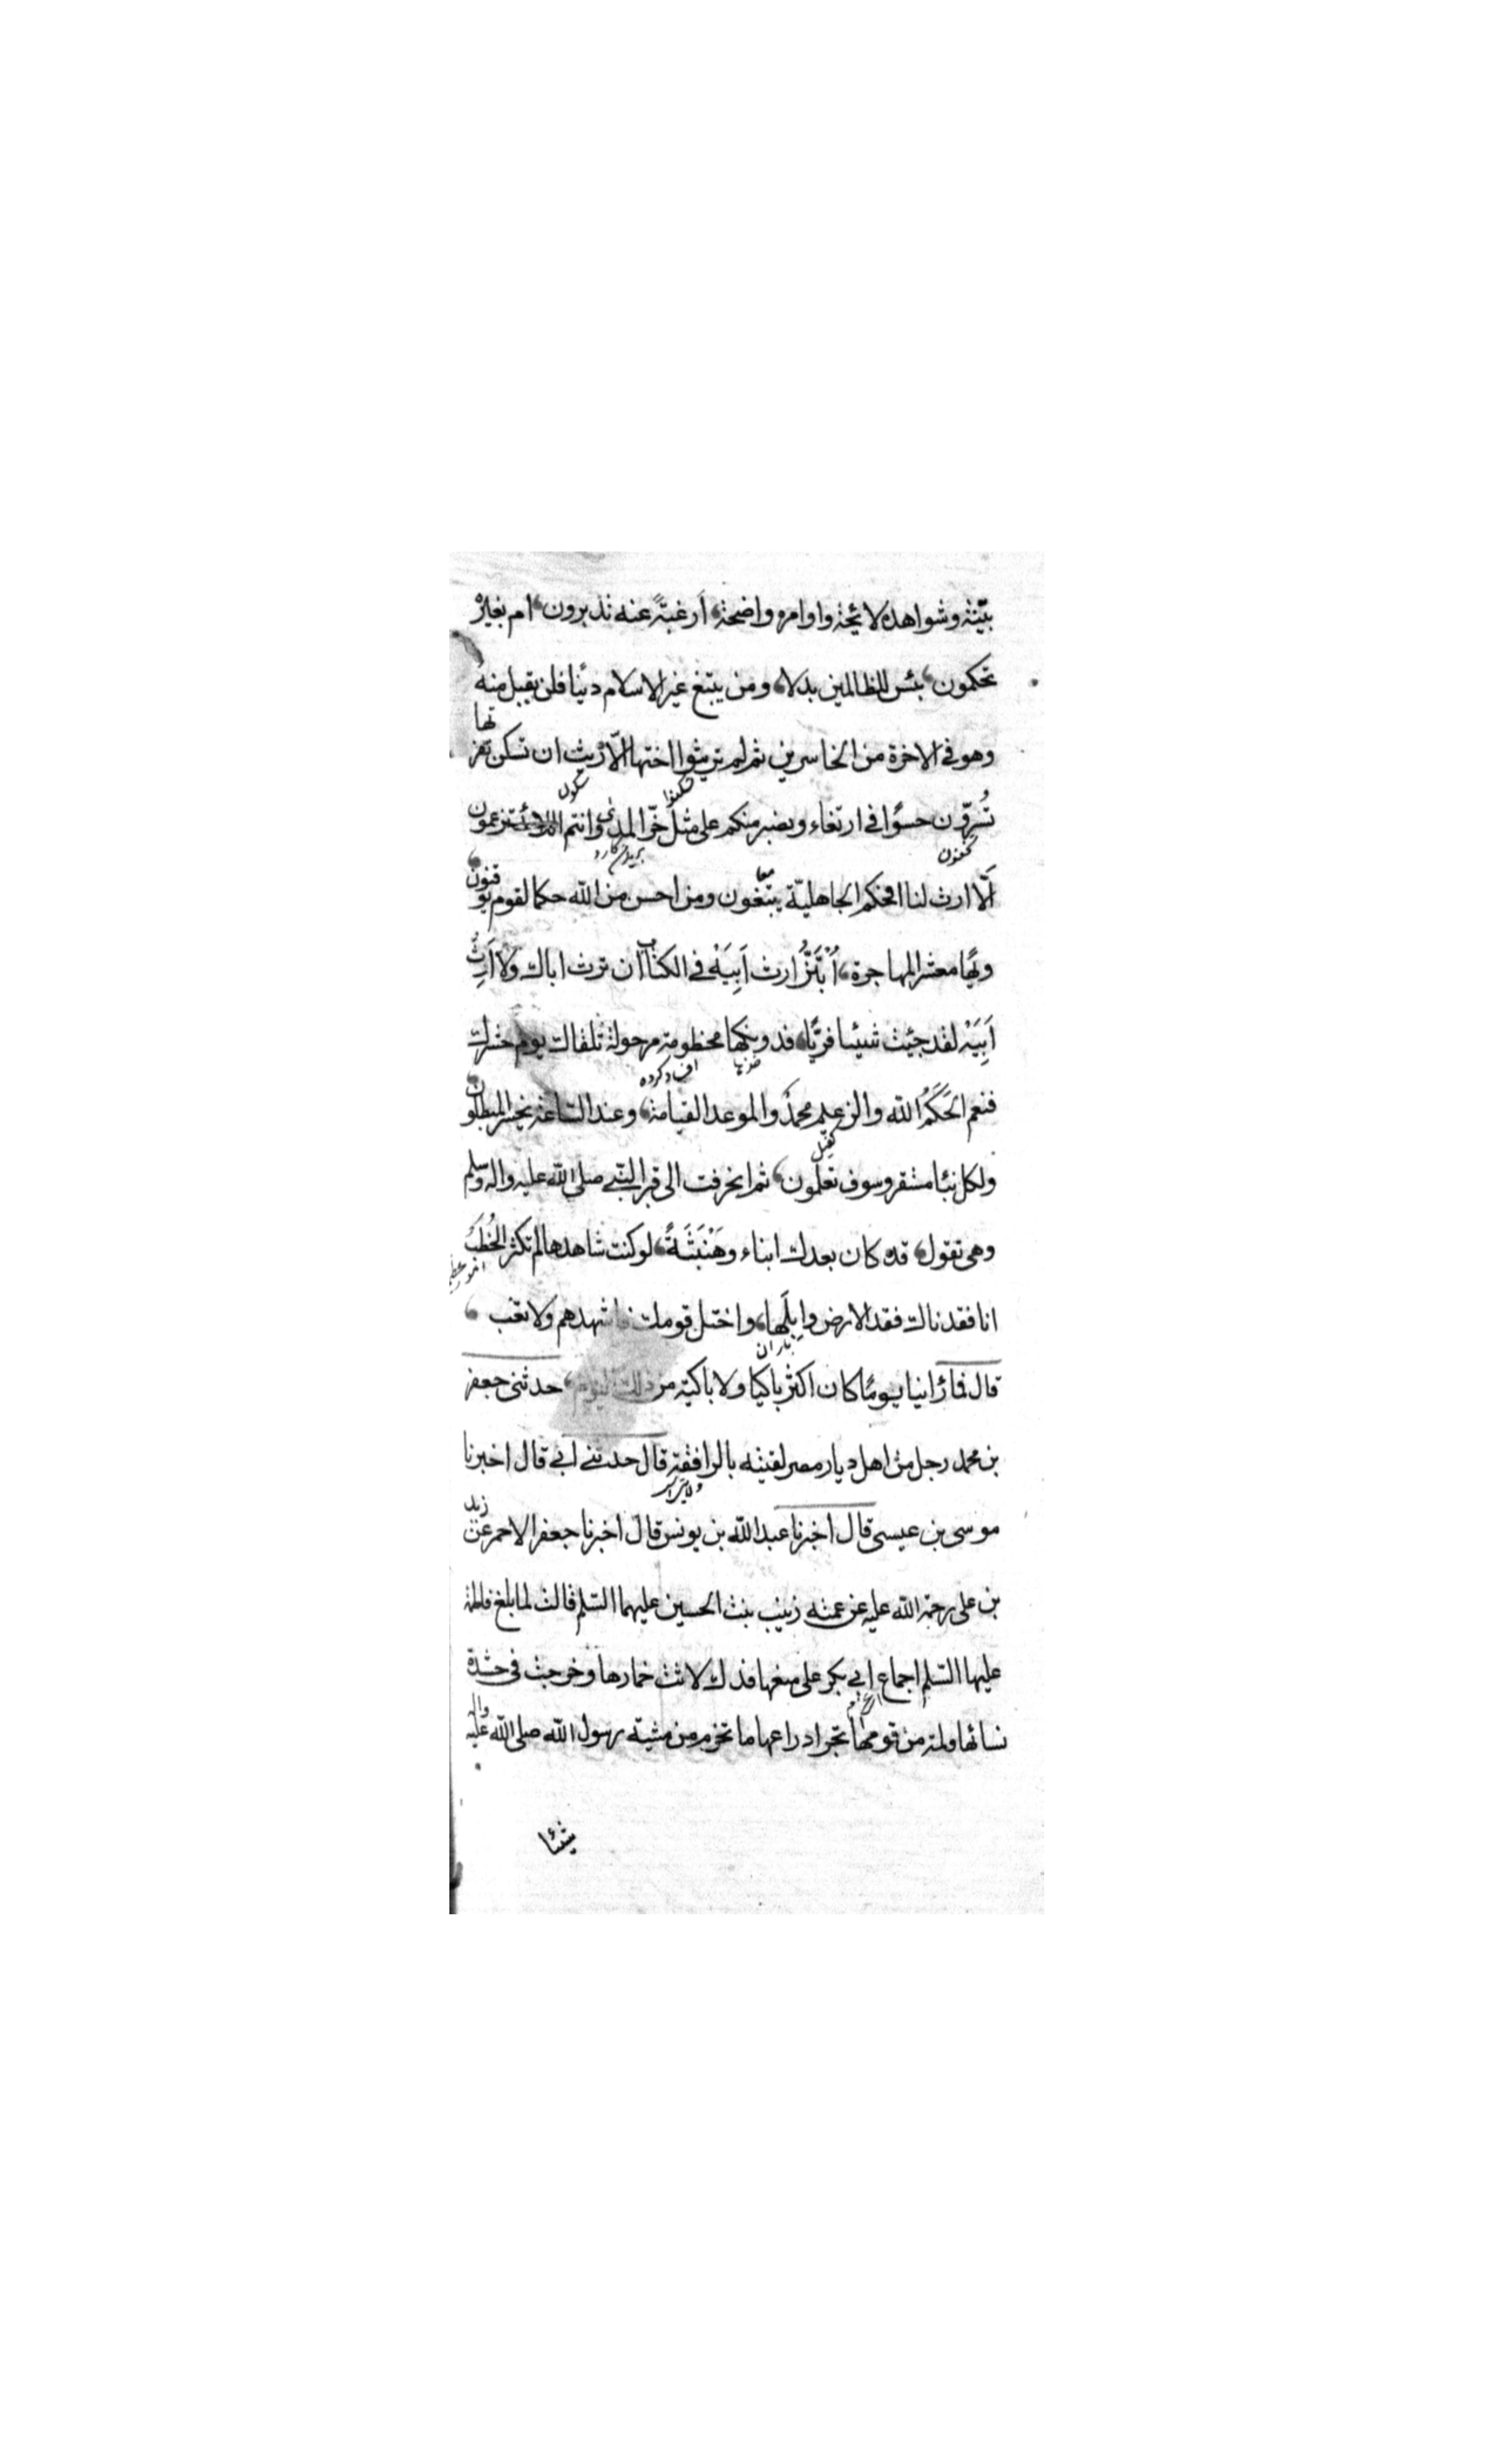 بيّنة وشواهده لائحة واوامره واضحة، أرغبةً عنه تدبرون، ام بغيره
تحكمون، بئس للظالمين بدلا، ومن يبتغ غير الاسلام دينا فلن يقبل منه
وهو فى الاخرة من الخاسرين ثم لم تريثوا اختها الّا ريث ان تسكن نغرتها
تُسرّون حسوًا فى ارتغاء ونصبر منكم على مثل حزّ المدى وانتم تزعمون
ألّا ارث لنا افحكم الجاهليّة يبتغون ومن احسن من الله حكما لقوم يوقنون
ويهًا معشر المهاجرة، أُبْتَزُّ ارث أَبِيَهْ فى الكتاب ان ترث اباك ولا أَرِثُ
أَبِيَهْ لقد جئت شيئا فريّا، فدونكها مخطومة مرحولة تلقاك يوم حشرك
فنعم الحَكَمُ الله والزعيم محمدٌ والموعد القيامة، وعند الساعة يخسر المبطلون
ولكل نبئا مستقر وسوف تعلمون، ثم انحرفت الى قبر النبى صلى الله عليه واله وسلم
وهى تقول، قد كان بعدك انباء وهَنْبَثَةً، لو كنت شاهدها لم تكثر الخُطَبُ
انا فقدناك فقد الارض وابِلَها، واختل قومك فاشهدهم ولا تغب،
باران
قال فما رأينا يوما كان اكثر باكيا ولا باكية من ذلك اليوم، حدثنى جعفر
بن محمد رجل من اهل ديار مصر لقيته بالرافقة قال حدثنى ابى قال اخبرنا
موسى بن عيسى قال اخبرنا عبدالله بن يونس قال اخبرنا جعفر الاحمر عن زيد
بن على رحمة الله عليه عن عمته زينب بنت الحسين عليهما السّلم قالت لما بلغ فاطمة
عليها السّلم اجماع ابى بكر على منعها فدك لاثت خمارها وخرجت فى حشدة
نسائها ولمة من قومها تجر ادراعها ما تخرم من مشية رسول الله صلى الله عليه واله
شيئا